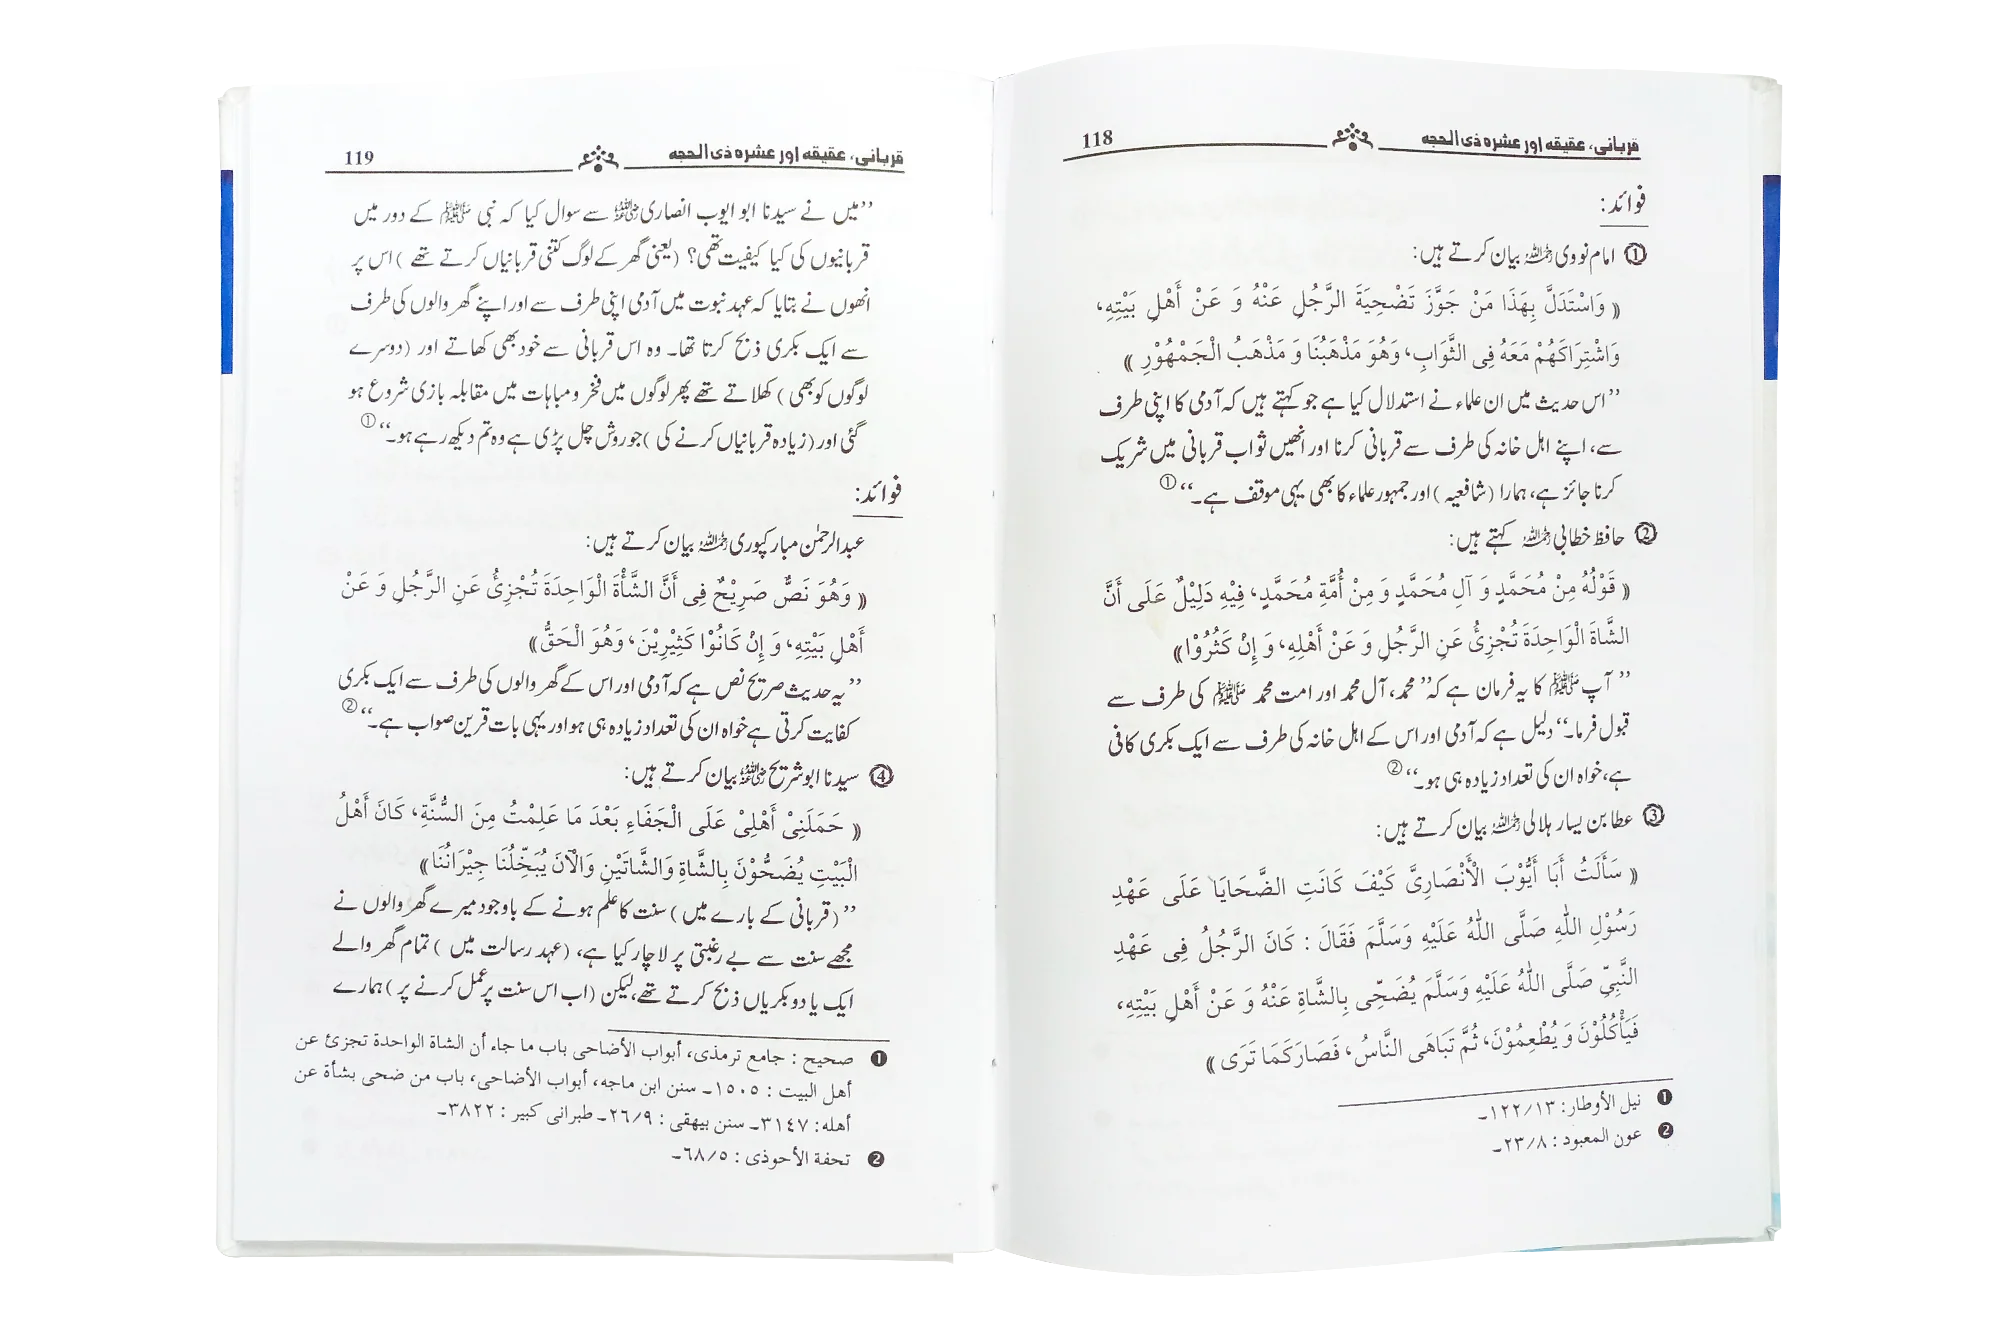 قربانی، عقیقہ اور عشرہ ذی الحجہ 118
فوائد:
① امام نووی رحمہ اللہ بیان کرتے ہیں:
(( وَاسْتَدَلَّ بِهَذَا مَنْ جَوَّزَ تَضْحِيَةَ الرَّجُلِ عَنْهُ وَ عَنْ أَهْلِ بَيْتِهِ،
وَاشْتِرَاكَهُمْ مَعَهُ فِى الثَّوَابِ، وَهُوَ مَذْهَبُنَا وَ مَذْهَبُ الْجَمْهُوْرِ ))
’’اس حدیث میں ان علماء نے استدلال کیا ہے جو کہتے ہیں کہ آدمی کا اپنی طرف
سے، اپنے اہل خانہ کی طرف سے قربانی کرنا اور انھیں ثواب قربانی میں شریک
کرنا جائز ہے، ہمارا (شافعیہ) اور جمہور علماء کا بھی یہی موقف ہے۔‘‘ ①
② حافظ خطابی رحمہ اللہ کہتے ہیں:
(( قَوْلُهُ مِنْ مُحَمَّدٍ وَ آلِ مُحَمَّدٍ وَ مِنْ أُمَّةِ مُحَمَّدٍ، فِيْهِ دَلِيْلٌ عَلَى أَنَّ
الشَّاةَ الْوَاحِدَةَ تُجْزِئُ عَنِ الرَّجُلِ وَ عَنْ أَهْلِهِ، وَ إِنْ كَثُرُوْا))
’’آپ ﷺ کا یہ فرمان ہے کہ ’’محمد، آل محمد اور امت محمد ﷺ کی طرف سے
قبول فرما۔‘‘ دلیل ہے کہ آدمی اور اس کے اہل خانہ کی طرف سے ایک بکری کافی
ہے، خواہ ان کی تعداد زیادہ ہی ہو۔‘‘ ②
③ عطا بن یسار ہلالی رحمہ اللہ بیان کرتے ہیں:
(( سَأَلَتُ أَبَا أَيُّوْبَ الْأَنْصَارِىَّ كَيْفَ كَانَتِ الضَّحَايَا عَلَى عَهْدِ
رَسُوْلِ اللّٰهِ صَلَّى اللّٰهُ عَلَيْهِ وَسَلَّمَ فَقَالَ : كَانَ الرَّجُلُ فِى عَهْدِ
النَّبِىِّ صَلَّى اللّٰهُ عَلَيْهِ وَسَلَّمَ يُضَحِّى بِالشَّاةِ عَنْهُ وَ عَنْ أَهْلِ بَيْتِهِ،
فَيَأْكُلُوْنَ وَ يُطْعِمُوْنَ، ثُمَّ تَبَاهَى النَّاسُ، فَصَارَ كَمَا تَرَى ))
❶ نيل الأوطار: ١٢٢/١٣۔
❷ عون المعبود : ٢٣/٨۔
قربانی، عقیقہ اور عشرہ ذی الحجہ 119
’’میں نے سیدنا ابو ایوب انصاری رضی اللہ عنہ سے سوال کیا کہ نبی ﷺ کے دور میں
قربانیوں کی کیا کیفیت تھی؟ (یعنی گھر کے لوگ کتنی قربانیاں کرتے تھے) اس پر
انھوں نے بتایا کہ عہد نبوت میں آدمی اپنی طرف سے اور اپنے گھر والوں کی طرف
سے ایک بکری ذبح کرتا تھا۔ وہ اس قربانی سے خود بھی کھاتے اور (دوسرے
لوگوں کو بھی) کھلاتے تھے پھر لوگوں میں فخر و مباہات میں مقابلہ بازی شروع ہو
گئی اور (زیادہ قربانیاں کرنے کی) جو روش چل پڑی ہے وہ تم دیکھ رہے ہو۔‘‘ ①
فوائد:
عبدالرحمٰن مبارکپوری رحمہ اللہ بیان کرتے ہیں:
(( وَهُوَ نَصٌّ صَرِيْحٌ فِى أَنَّ الشَّأْةَ الْوَاحِدَةَ تُجْزِئُ عَنِ الرَّجُلِ وَ عَنْ
أَهْلِ بَيْتِهِ، وَ إِنْ كَانُوْا كَثِيْرِيْنَ، وَهُوَ الْحَقُّ))
’’یہ حدیث صریح نص ہے کہ آدمی اور اس کے گھر والوں کی طرف سے ایک بکری
کفایت کرتی ہے خواہ ان کی تعداد زیادہ ہی ہو اور یہی بات قرین صواب ہے۔‘‘ ②
④ سیدنا ابو شریح رضی اللہ عنہ بیان کرتے ہیں:
(( حَمَلَنِىْ أَهْلِىْ عَلَى الْجَفَاءِ بَعْدَ مَا عَلِمْتُ مِنَ السُّنَّةِ، كَانَ أَهْلُ
الْبَيْتِ يُضَحُّوْنَ بِالشَّاةِ وَالشَّاتَيْنِ وَالْآنَ يُبَخِّلُنَا جِيْرَانُنَا))
’’(قربانی کے بارے میں) سنت کا علم ہونے کے باوجود میرے گھر والوں نے
مجھے سنت سے بے رغبتی پر لاچار کیا ہے، (عہد رسالت میں) تمام گھر والے
ایک یا دو بکریاں ذبح کرتے تھے، لیکن (اب اس سنت پر عمل کرنے پر) ہمارے
❶ صحيح : جامع ترمذى، أبواب الأضاحى باب ما جاء أن الشاة الواحدة تجزئ عن
أهل البيت : ١٥٠٥۔ سنن ابن ماجه، أبواب الأضاحى، باب من ضحى بشأة عن
أهله: ٣١٤٧۔ سنن بيهقى : ٢٦/٩۔ طبرانى كبير : ٣٨٢٢۔
❷ تحفة الأحوذى : ٦٨/٥۔